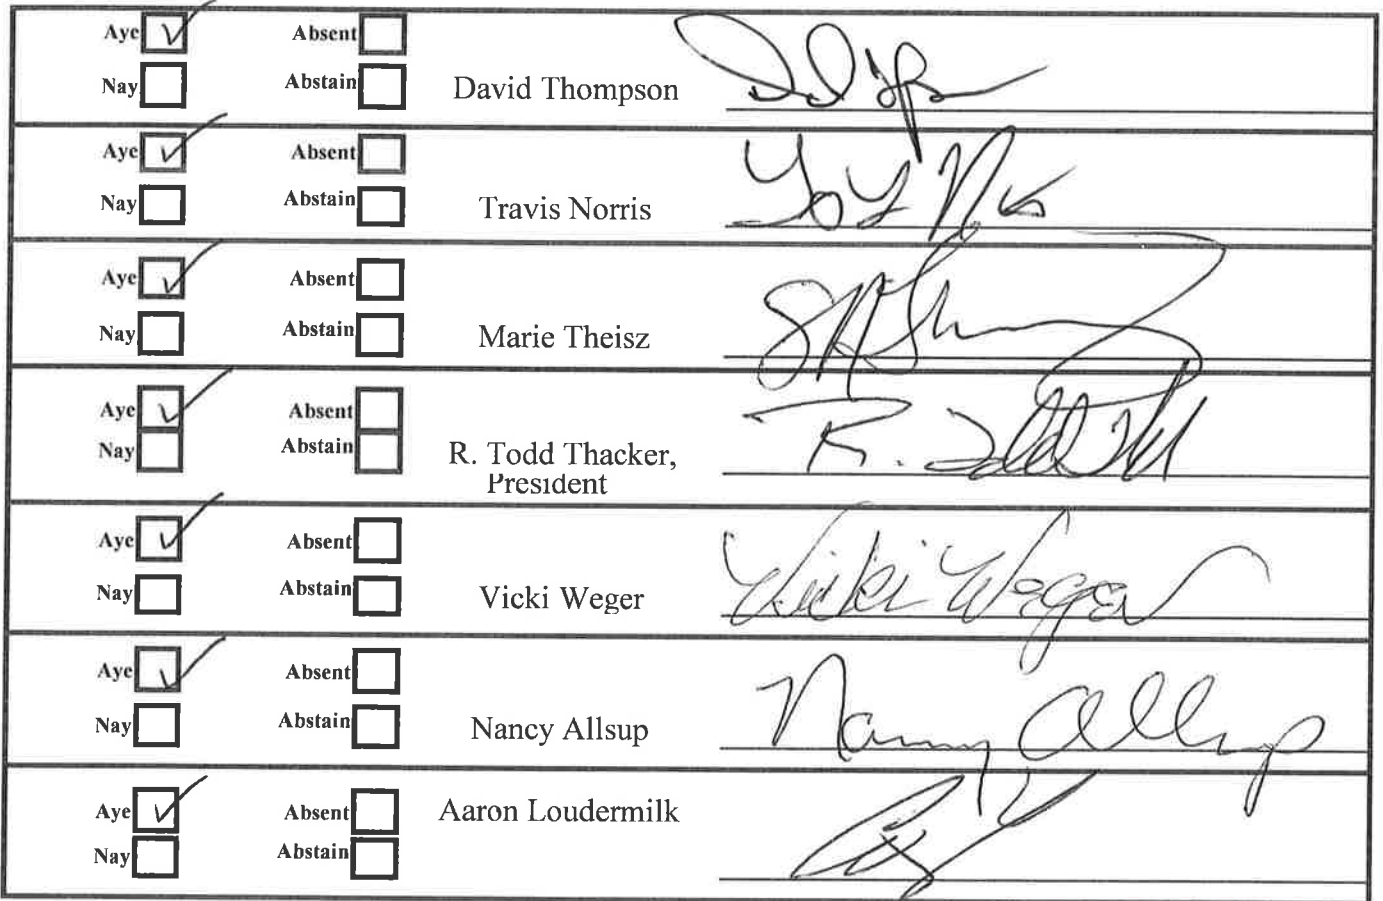 Aye Absent
Nay Abstain David Thompson
Aye Absent
Nay Abstain Travis Norris
Aye Absent
Nay Abstain Marie Theisz
Aye Absent
Nay Abstain R. Todd Thacker,
President
R. Todd
Aye Absent
Nay Abstain Vicki Weger
Vicki Weger
Aye Absent
Nay Abstain Nancy Allsup
Nancy Allsup
Aye Absent Aaron Loudermilk
Nay Abstain